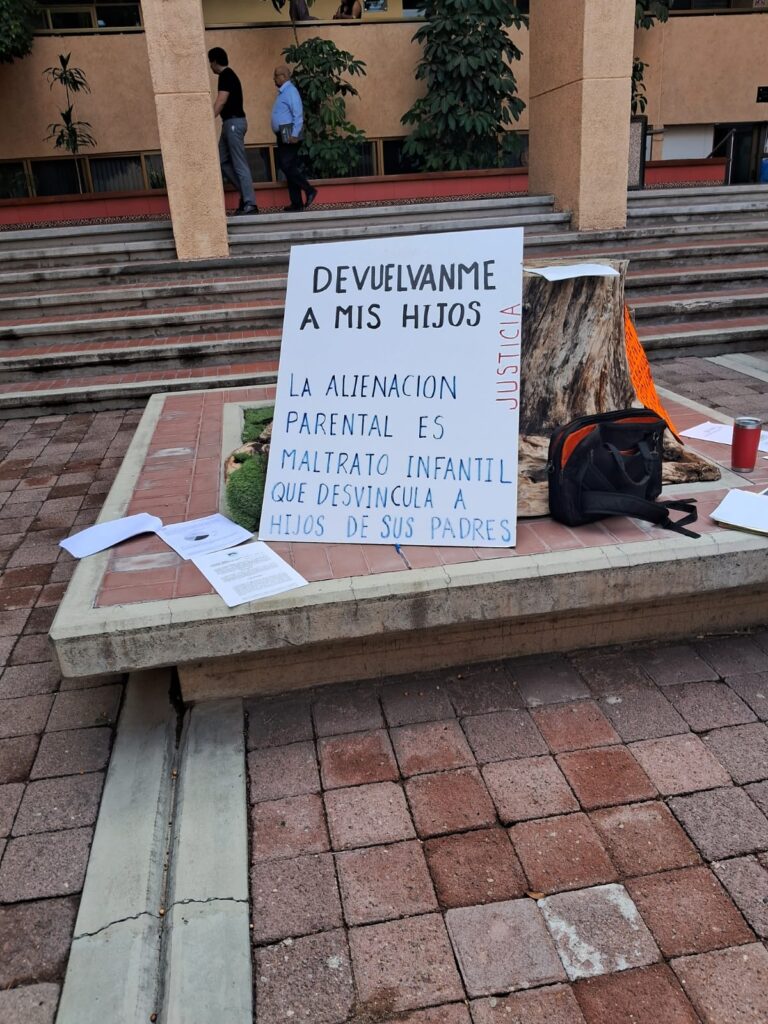 DEVUELVANME
A MIS HIJOS
JUSTICIA
LA ALIENACION
PARENTAL ES
MALTRATO INFANTIL
QUE DESVINCULA A
HIJOS DE SUS PADRES